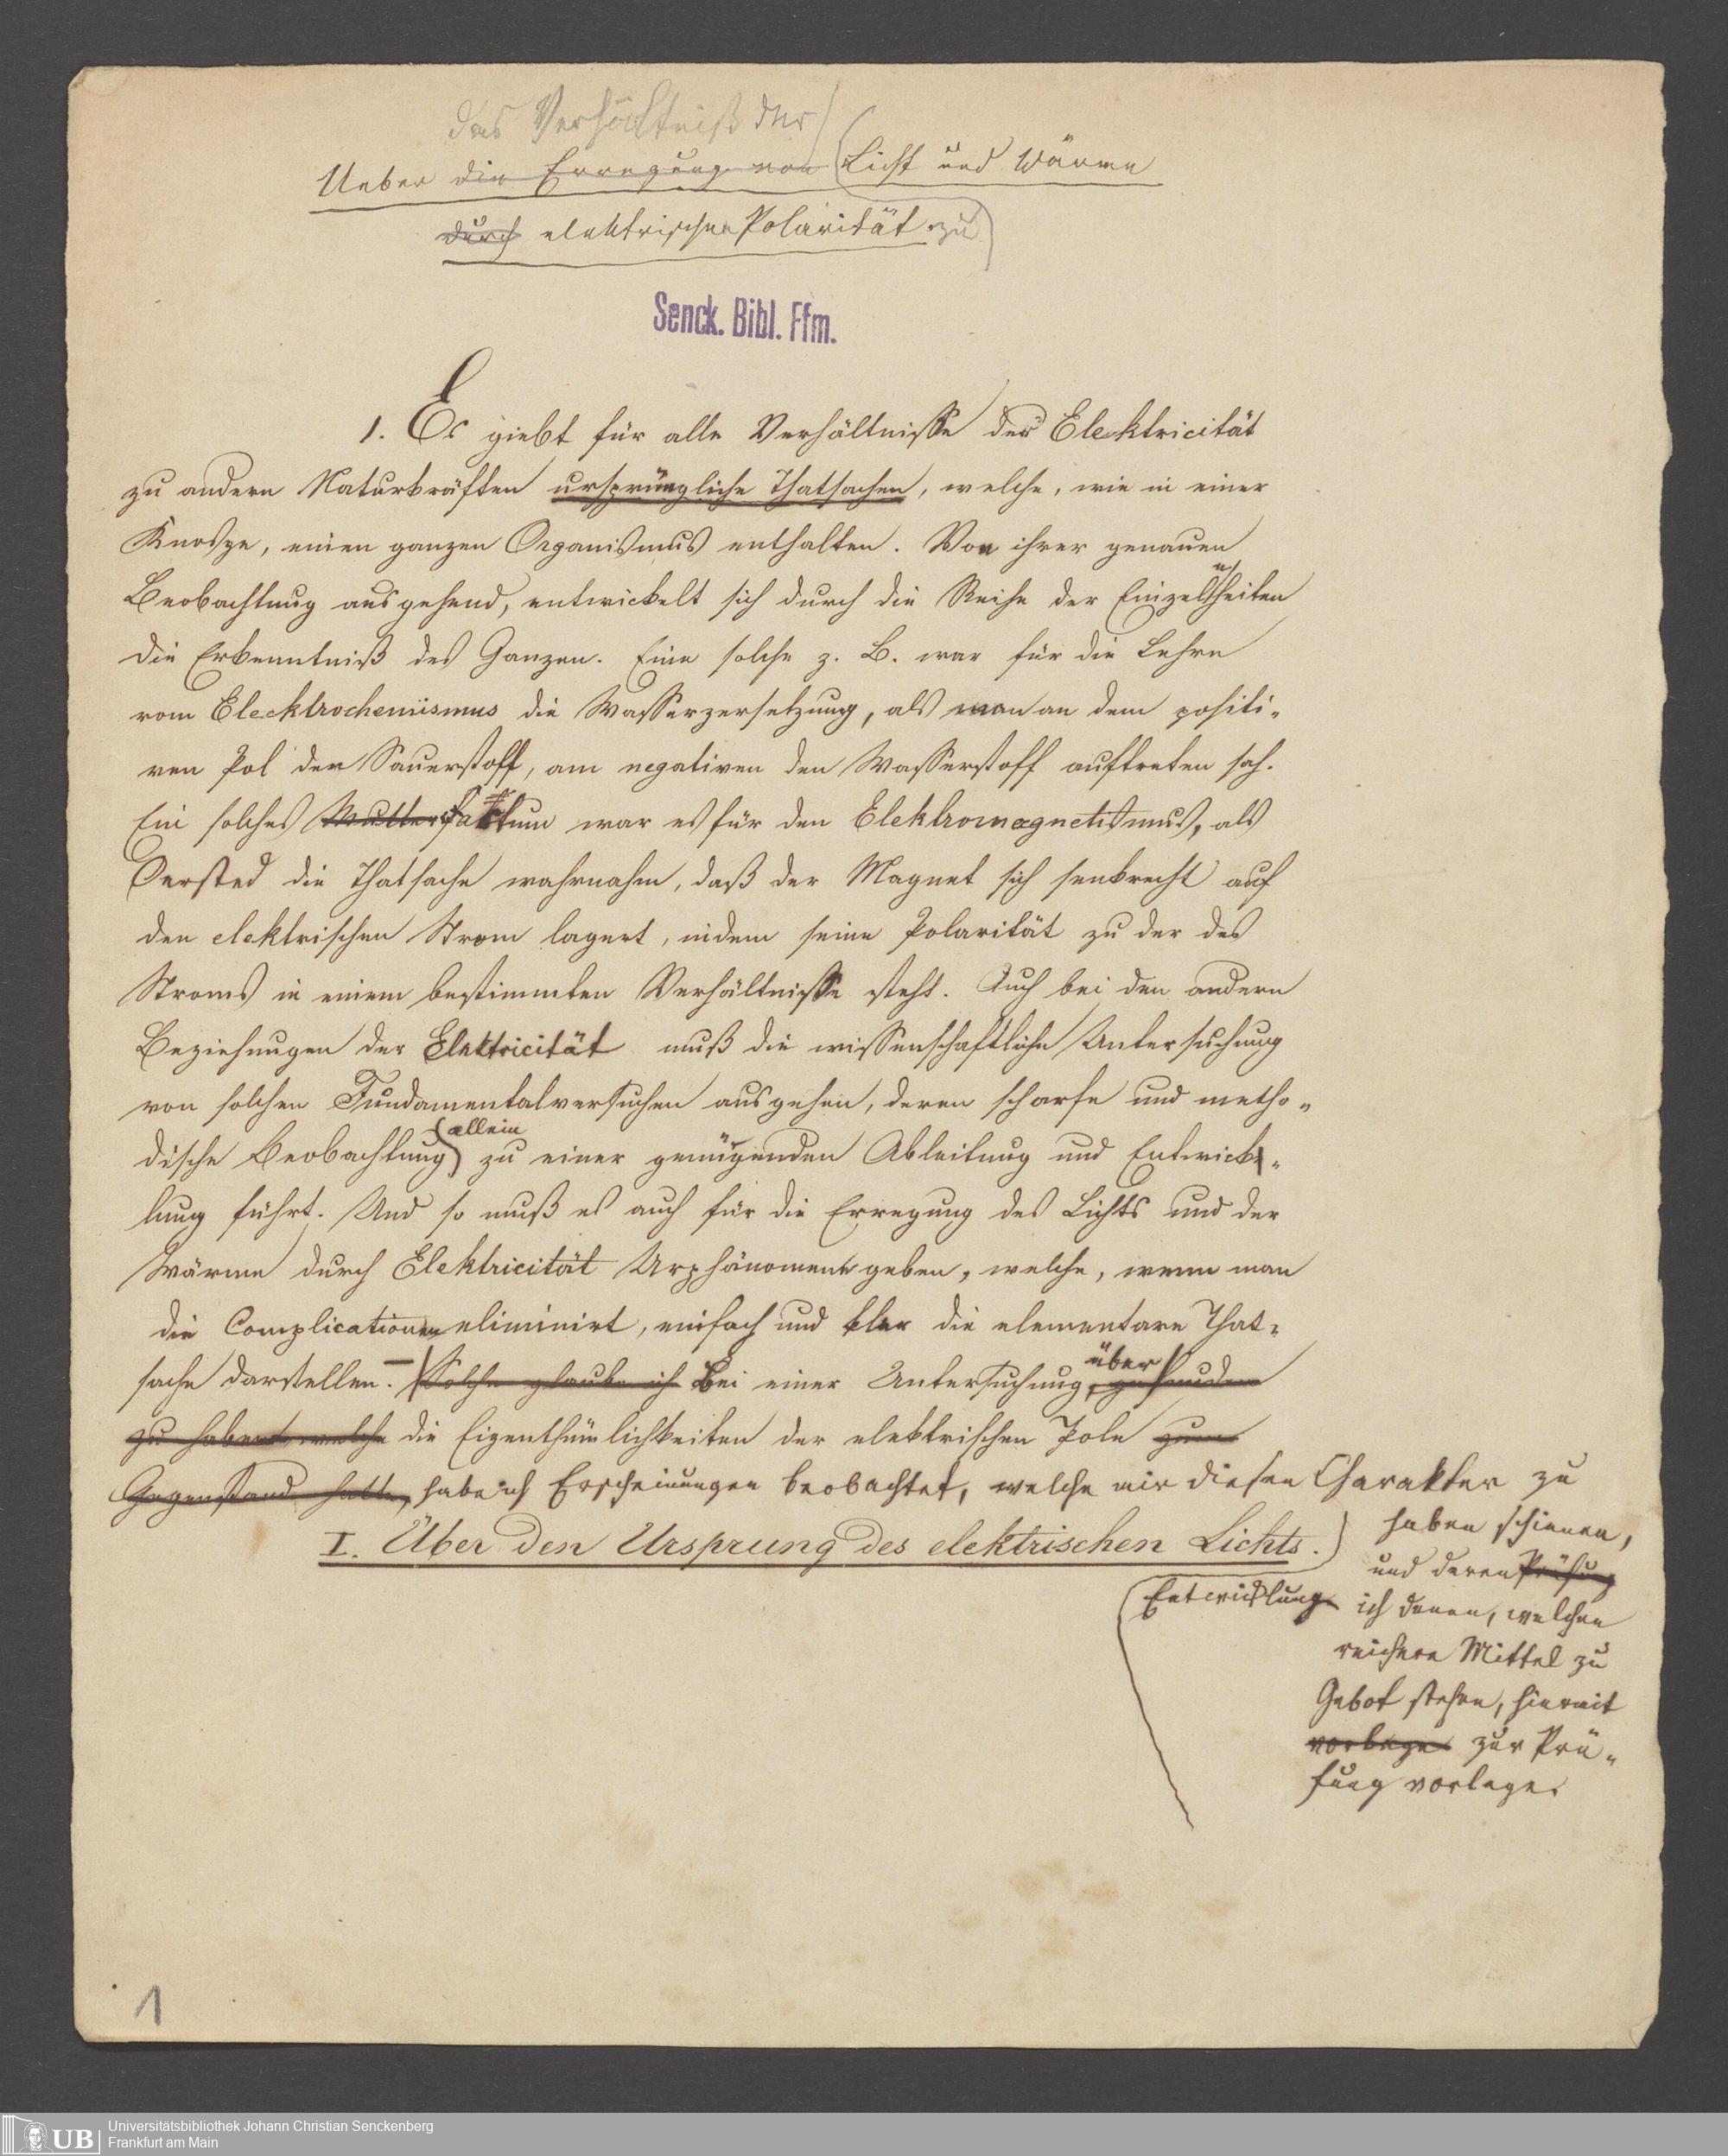 das Verhältniß der
Ueber die Erregung von Licht und Wärme
durch elektrischer Polarität zu
Senck. Bibl. Ffm.
1. Es giebt für alle Verhältnisse der Elecktricität
zu andern Naturkräften ursprüngliche Thatsachen, welche, wie in einer
Knospe, einen ganzen Organismus enthalten. Von ihrer genauen
Beobachtung ausgehend, entwickelt sich durch die Reihe der Einzelnheiten
die Erkenntniß des Ganzen. Eine solche z. B. war für die Lehre
vom Elecktrochemismus die Wasserzersetzung, als man an dem positi-
ven Pol den Sauerstoff, am negativen den Wasserstoff auftreten sah.
Ein solches Mutterfaktum war es für den Elektromagnetismus, als
Oersted die Thatsache wahrnahm, daß der Magnet sich senkrecht auf
den elektrischen Strom lagert, indem seine Polarität zu der des
Stroms in einem bestimmten Verhältnisse steht. Auch bei den andern
Beziehungen der Elektricität muß die wissenschaftliche Untersuchung
von solchen Fundamentalversuchen ausgehen, deren scharfe und metho-
allein
dische Beobachtung zu einer genügenden Ableitung und Entwick-
lung führt. Und so muß es auch für die Erregung des Lichts und der
Wärme durch Elektricität Urphänomene geben, welche, wenn man
die Complicationen eliminirt, einfach und klar die elementare That-
sache darstellen. – Solche glaube ich Bei einer Untersuchung, über gefunden
zu haben welche die Eigenthümlichkeiten der elektrischen Pole zum
Gegenstand hatte, habe ich Erscheinungen beobachtet, welche mir diesen Charakter zu
haben schienen,
und deren Prüfung
ich denen, welchen
reichere Mittel zu
Gebot stehen, hiermit
vorlege zur Prü-
fung vorlege.
I. Über den Ursprung des elektrischen Lichts.
Entwicklung
1
UB
Universitätsbibliothek Johann Christian Senckenberg
Frankfurt am Main